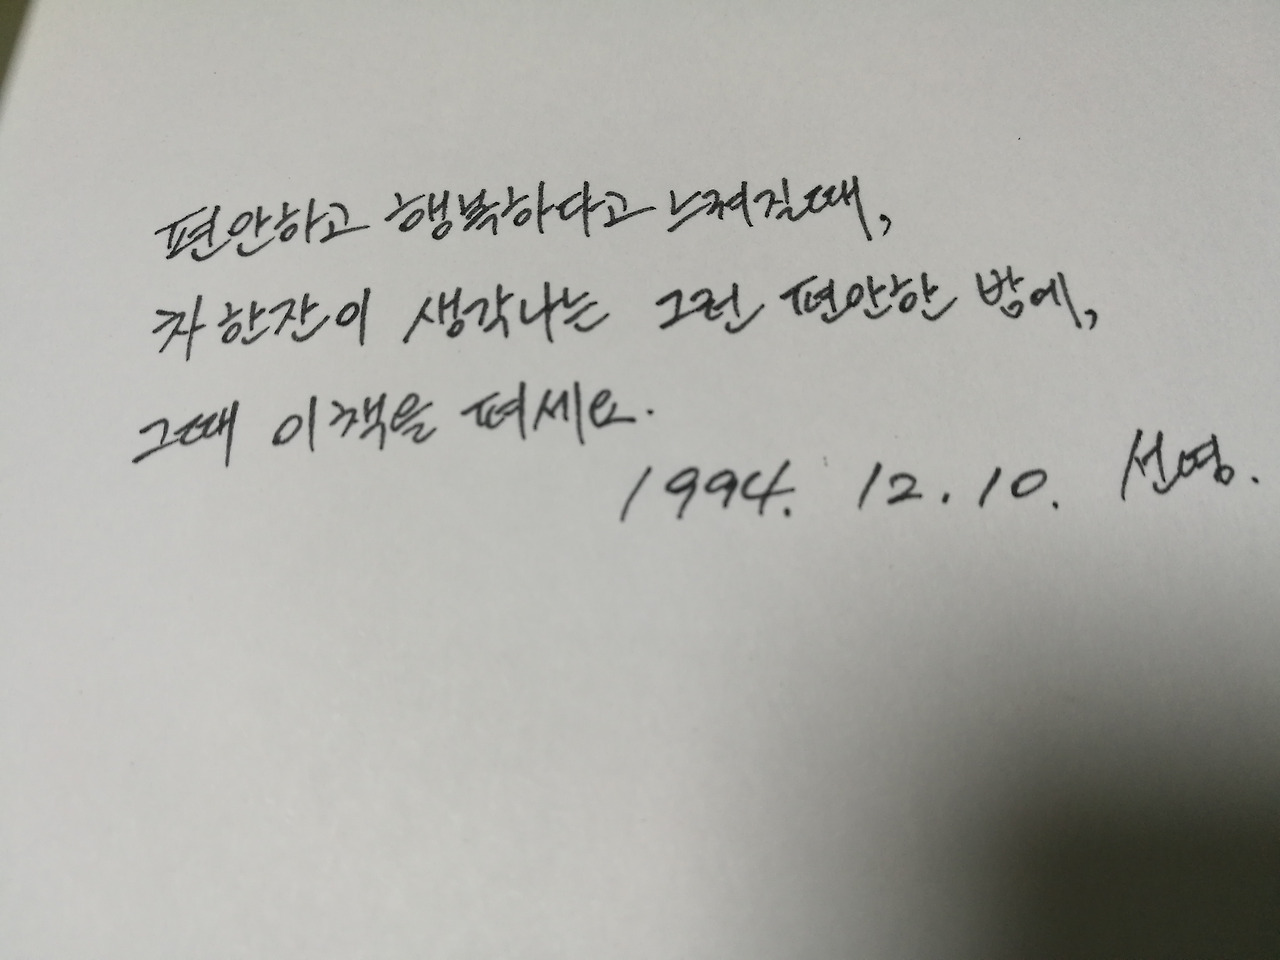 편안하고 행복하다고 느껴질때,
차 한잔이 생각나는 그런 편안한 밤에,
그때 이책을 펴세요.
1994. 12. 10. 선영.